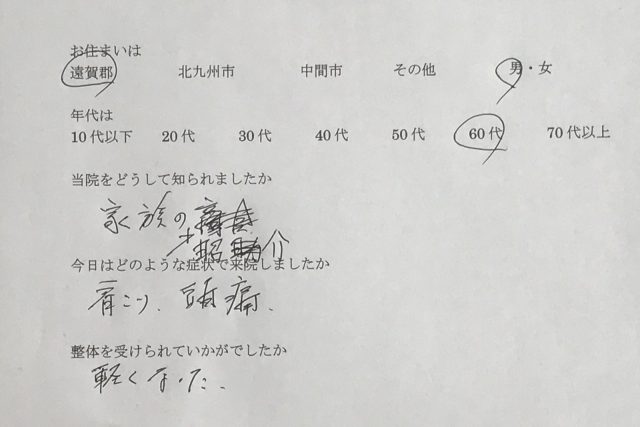 お住まいは
遠賀郡 北九州市 中間市 その他 男・女
年代は
10代以下 20代 30代 40代 50代 60代 70代以上
当院をどうして知られましたか
家族の
招介
今日はどのような症状で来院しましたか
肩こり、頭痛、
整体を受けられていかがでしたか
軽くなった、